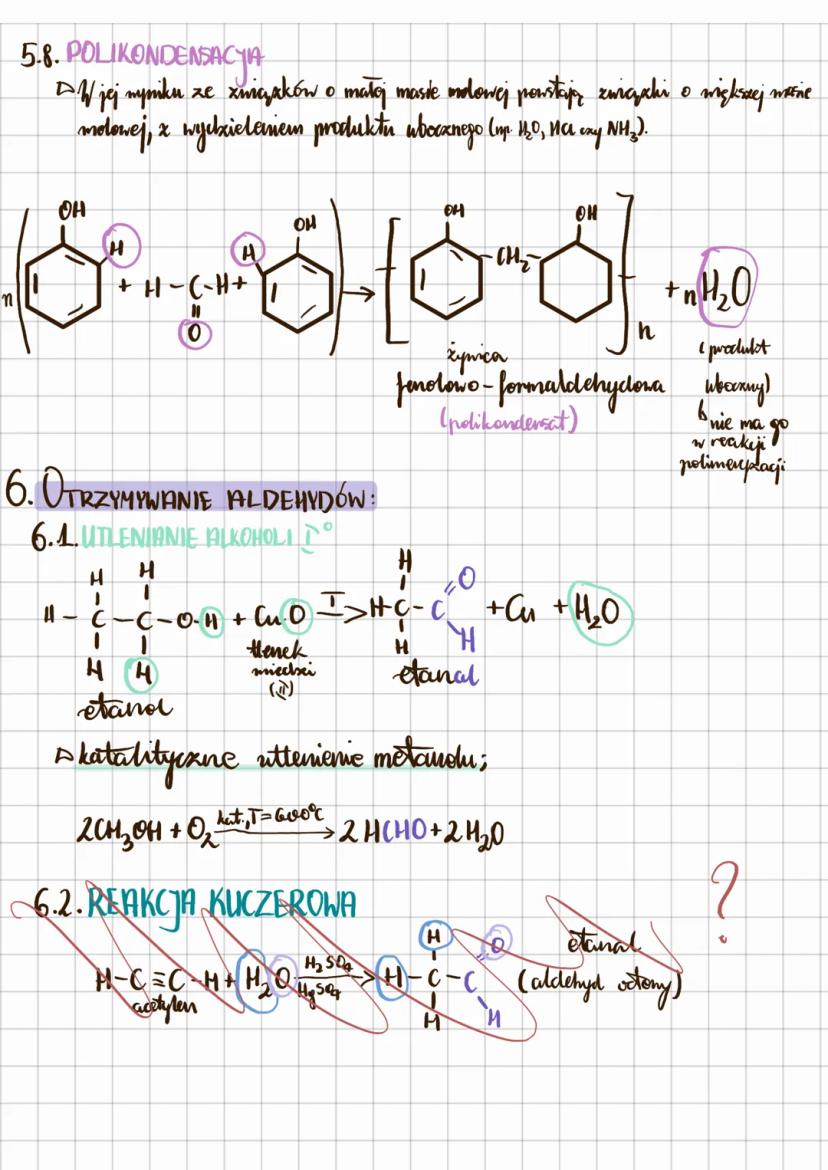 5.8. POLIKONDENSACJA
▷ W jej wyniku ze związków o małej masie molowej powstają związki o większej masie
molowej, z wydzieleniem produktu ubocznego (np. H₂O, HCl czy NH₃).
OH OH OH OH
n H + H-C-H + H → -CH₂- + n H₂O
O
n
żywica
fenolowo-formaldehydowa
(polikondensat)
(produkt
uboczny)
↳ nie ma go
w reakcji
polimeryzacji
6. OTRZYMYWANIE ALDEHYDÓW:
6.1. UTLENIANIE ALKOHOLI I°
H H H O
H-C-C-O-H + CuO T> H-C-C +Cu +H₂O
H H H H
tlenek
miedzi
(II)
etanol
etanal
▷ katalityczne utlenienie metanolu;
2CH₃OH + O₂ kat., T=600°C → 2HCHO+2H₂O
6.2. REAKCJA KUCZEROWA
?
H O etanal
H-C≡C-H + H₂O H₂SO₄ HgSO₄ → H-C-C (aldehyd octowy)
acetylen
H H